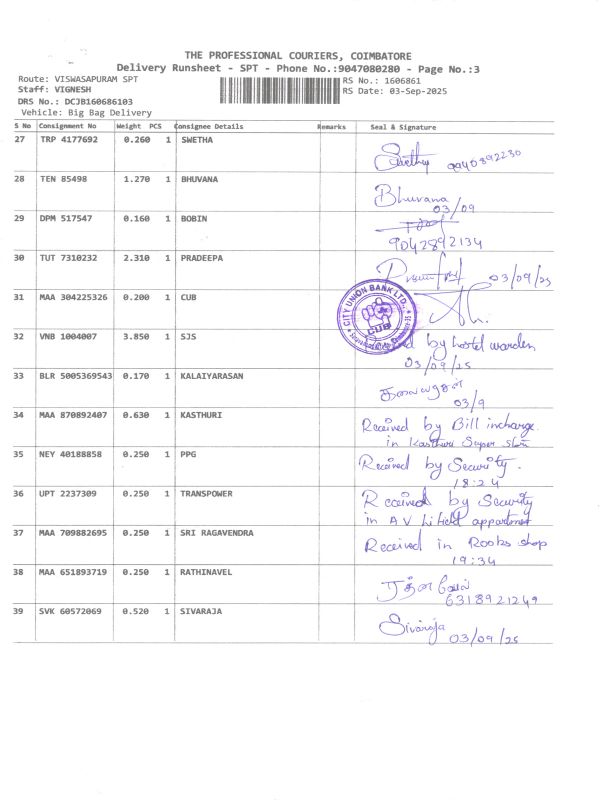 THE PROFESSIONAL COURIERS, COIMBATORE
Delivery Runsheet - SPT - Phone No.:9047080280 - Page No.:3
Route: VISWASAPURAM SPT
RS No.: 1606861
Staff: VIGNESH
RS Date: 03-Sep-2025
DRS No.: DCJB160686103
Vehicle: Big Bag Delivery
S No Consignment No Weight PCS Consignee Details Remarks Seal & Signature
27 TRP 4177692 0.260 1 SWETHA Swethy 9940892230
28 TEN 85498 1.270 1 BHUVANA Bhuvana
03/09
29 DPM 517547 0.160 1 BOBIN
9042892134
30 TUT 7310232 2.310 1 PRADEEPA 03/09/25
31 MAA 304225326 0.200 1 CUB CITY UNION BANK LTD., CUB
32 VNB 1004007 3.850 1 SJS by hostel warden
03/09/25
33 BLR 5005369543 0.170 1 KALAIYARASAN கலையரசன்
03/9
34 MAA 870892407 0.630 1 KASTHURI Received by Bill incharge.
in Kasthuri Super store
35 NEY 40188858 0.250 1 PPG Received by Security.
18:24
36 UPT 2237309 0.250 1 TRANSPOWER Received by Security
in A V appartment
37 MAA 709882695 0.250 1 SRI RAGAVENDRA Received in Rooks shop
19:34
38 MAA 651893719 0.250 1 RATHINAVEL ரத்னவேல்
6318921249
39 SVK 60572069 0.520 1 SIVARAJA Sivaraja 03/09/25